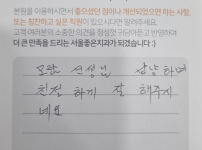 본원을 이용하시면서 좋으셨던 점이나 개선되었으면 하는 사항,
또는 칭찬하고 싶은 직원이 있으시다면 알려주세요.
고객 여러분의 소중한 의견을 정성껏 귀담아듣고 반영하여
더 큰 만족을 드리는 서울좋은치과가 되겠습니다 :)
선생님 하며
친절 하게 잘 해주지
네요